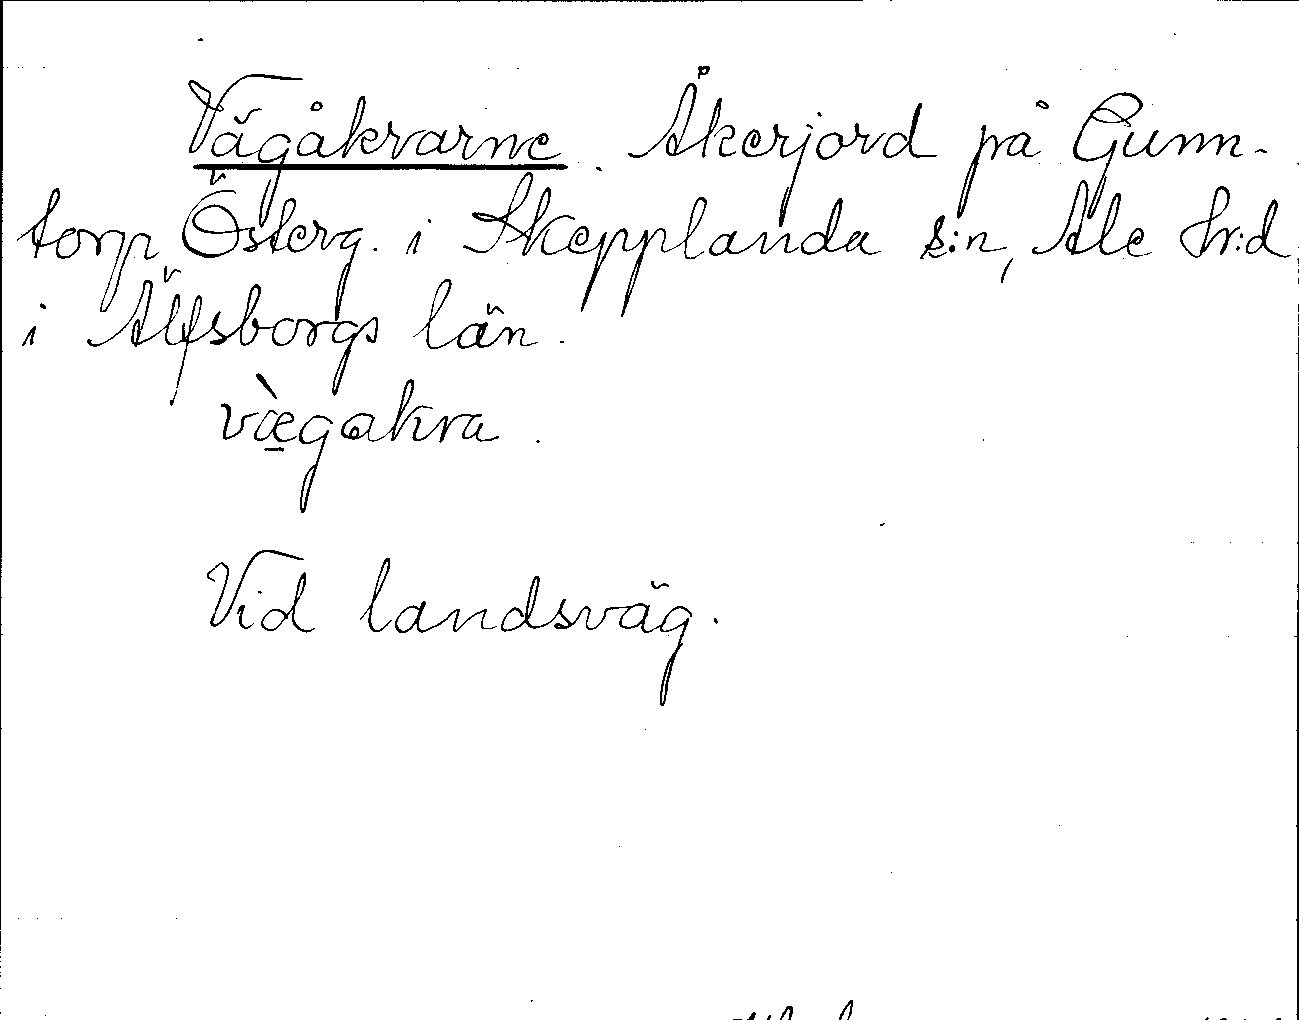 Vägåkrarne. Åkerjord på Gunn-
torp Österg. i Skepplanda s:n, Ale hr:d
i Älfsborgs län.
væ̀gakra.
Vid landsväg.